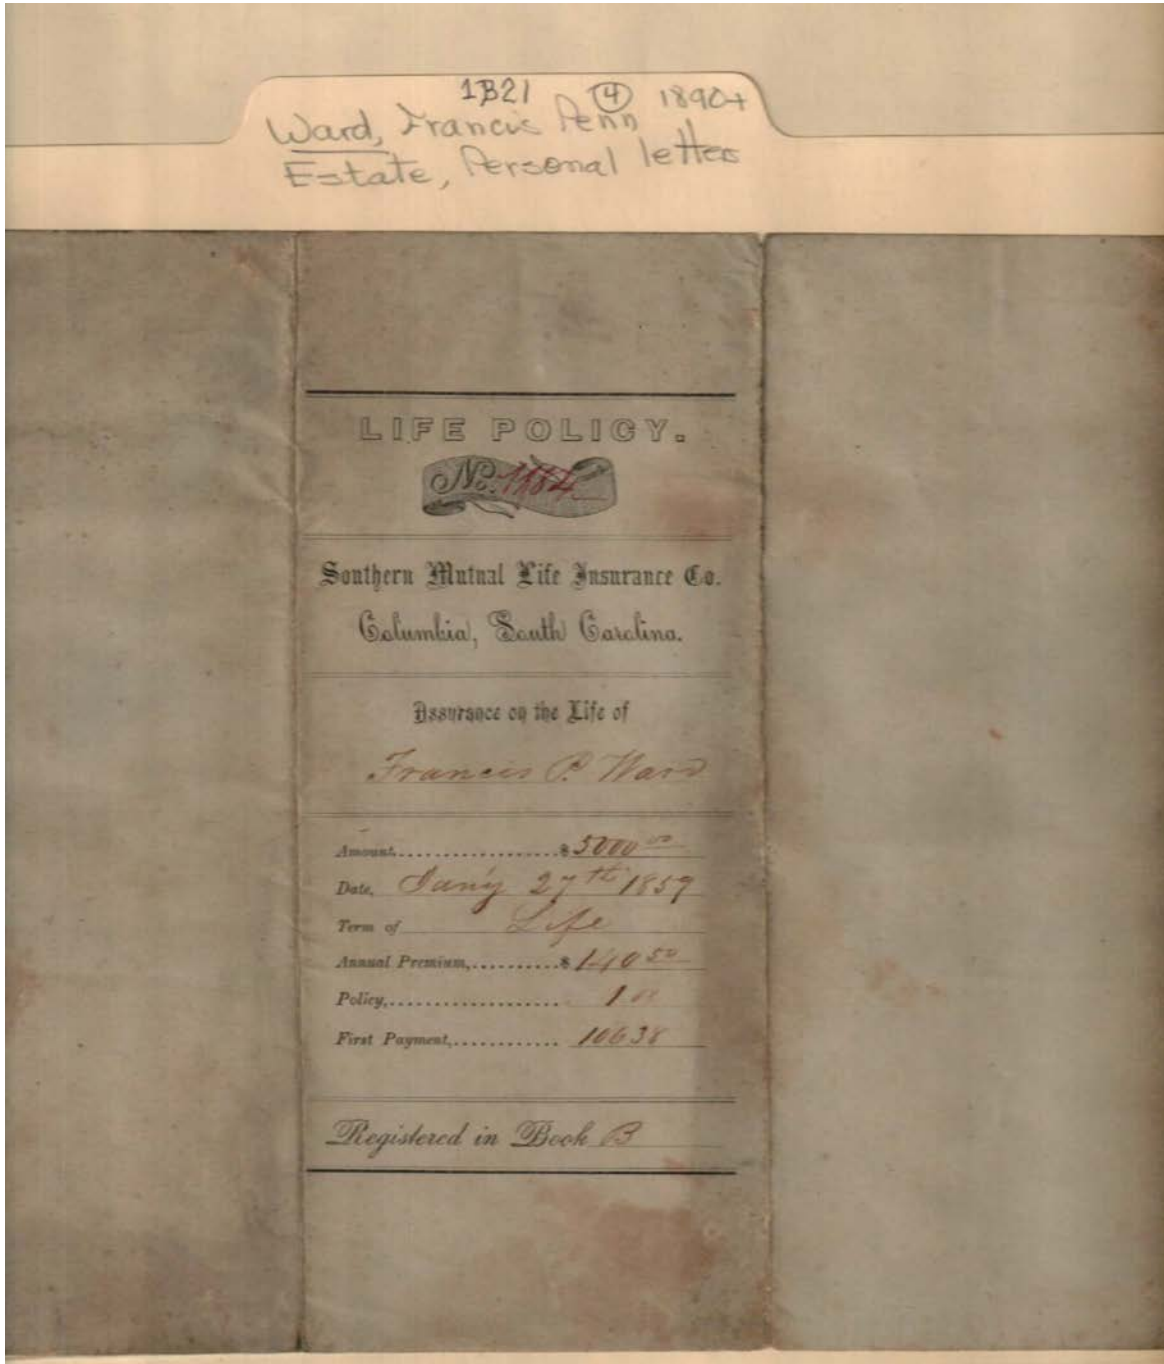 1B21 ④ 1890+
Ward, Francis Penn
Estate, Personal letters
LIFE POLICY.
No. 1184
Southern Mutual Life Insurance Co.
Columbia, South Carolina.
Assurance on the Life of
Francis P. Ward
Amount, $ 5000 00
Date, Jan'y 27th 1859
Term of Life
Annual Premium, $ 140 50
Policy, 1 00
First Payment, 106 38
Registered in Book B